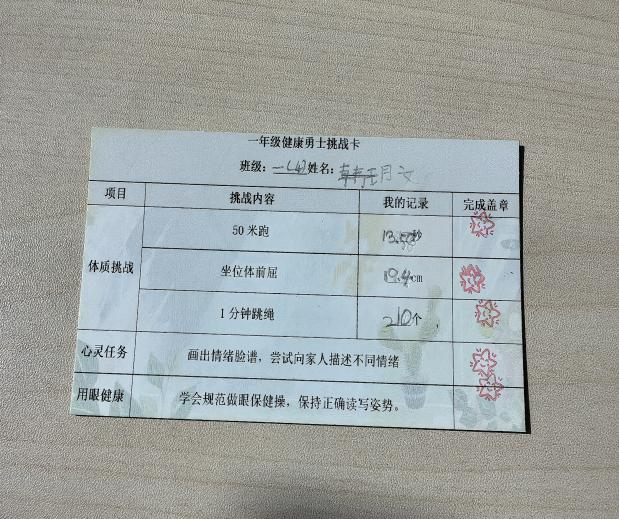 一年级健康勇士挑战卡
班级：一(4)姓名：
项目 挑战内容 我的记录 完成盖章
体质挑战
50 米跑
坐位体前屈 cm
1 分钟跳绳 210个
心灵任务 画出情绪脸谱，尝试向家人描述不同情绪
用眼健康 学会规范做眼保健操，保持正确读写姿势。